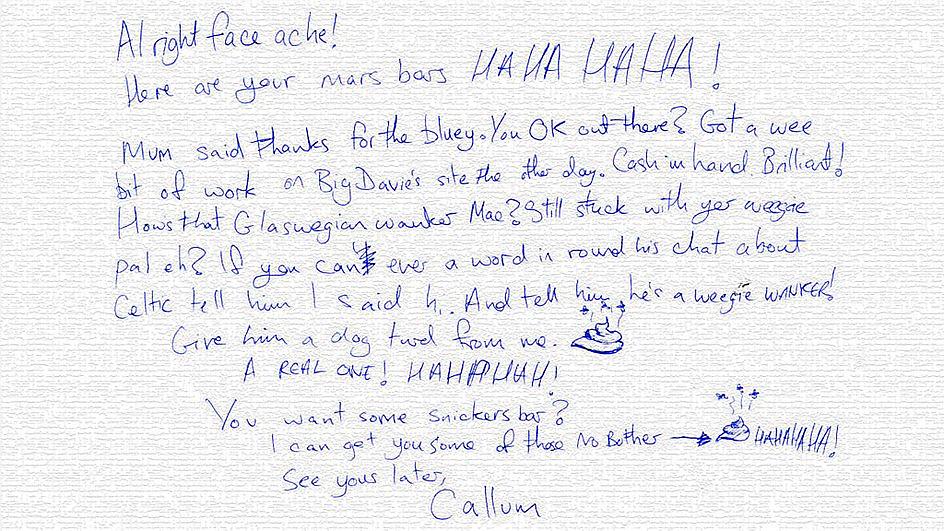 Alright face ache!
Here are your mars bars HAHA HAHA!
Mum said thanks for the bluey. You OK out there? Got a wee
bit of work on Big Davie's site the other day. Cash in hand. Brilliant!
Hows that Glaswegian wanker Mae? Still stuck with yer weegie
pal eh? If you can ever a word in round his chat about
Celtic tell him I said hi. And tell him he's a weegie WANKER!
Give him a dog turd from me.
A REAL ONE! HAHAHAHAH!
You want some snickers bar?
I can get you some of those No Bother → HAHAHAHA!
See yous later,
Callum